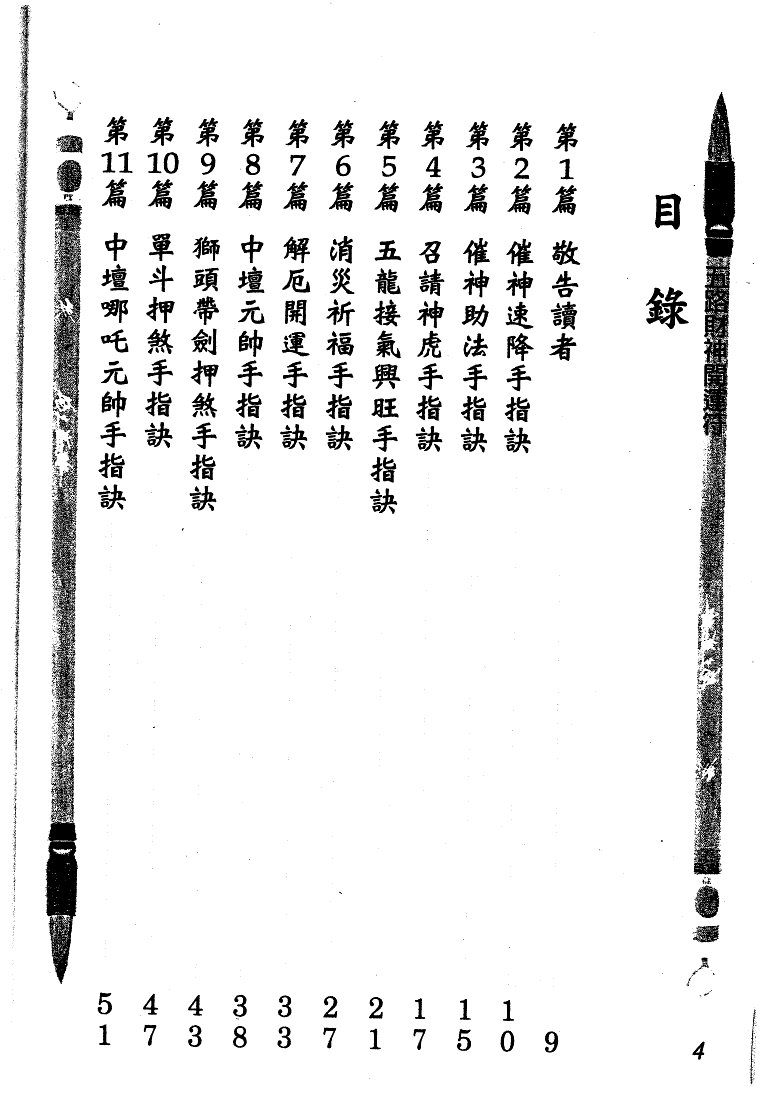 五路財神開運符
目錄
第1篇 敬告讀者 9
第2篇 催神速降手指訣 10
第3篇 催神助法手指訣 15
第4篇 召請神虎手指訣 17
第5篇 五龍接氣興旺手指訣 21
第6篇 消災祈福手指訣 27
第7篇 解厄開運手指訣 33
第8篇 中壇元帥手指訣 38
第9篇 獅頭帶劍押煞手指訣 43
第10篇 單斗押煞手指訣 47
第11篇 中壇哪吒元帥手指訣 51
4